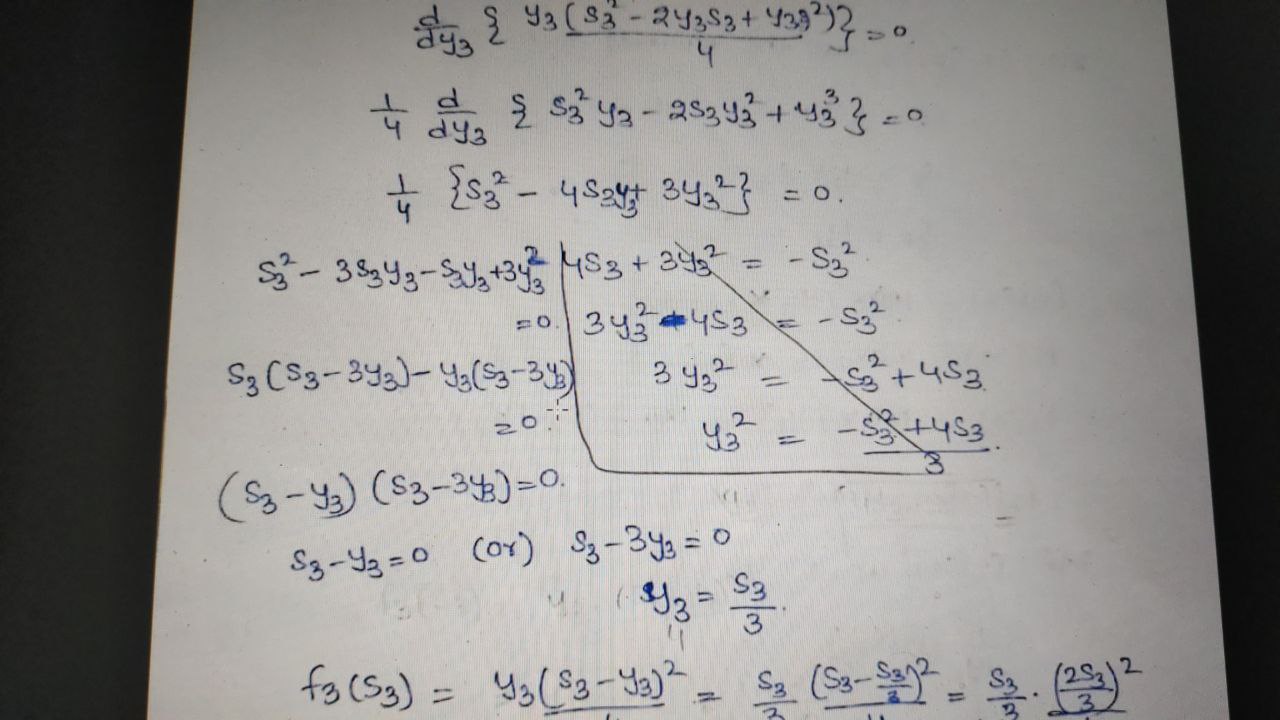 d/dy₃ { y₃(s₃² - 2y₃s₃ + y₃²)/4 } = 0.
1/4 d/dy₃ { s₃²y₃ - 2s₃y₃² + y₃³ } = 0.
1/4 {s₃² - 4s₃y₃ + 3y₃²} = 0.
s₃² - 3s₃y₃ - s₃y₃ + 3y₃²
= 0.
s₃(s₃ - 3y₃) - y₃(s₃ - 3y₃)
= 0.
4s₃ + 3y₃² = -s₃².
3y₃² - 4s₃ = -s₃².
3y₃² = -s₃² + 4s₃.
y₃² = (-s₃² + 4s₃)/3.
(s₃ - y₃) (s₃ - 3y₃) = 0.
s₃ - y₃ = 0 (or) s₃ - 3y₃ = 0
y₃ = s₃/3.
f₃(s₃) = y₃(s₃ - y₃)²/4 = s₃/3 (s₃ - s₃/3)²/4 = s₃/3 · (2s₃/3)²